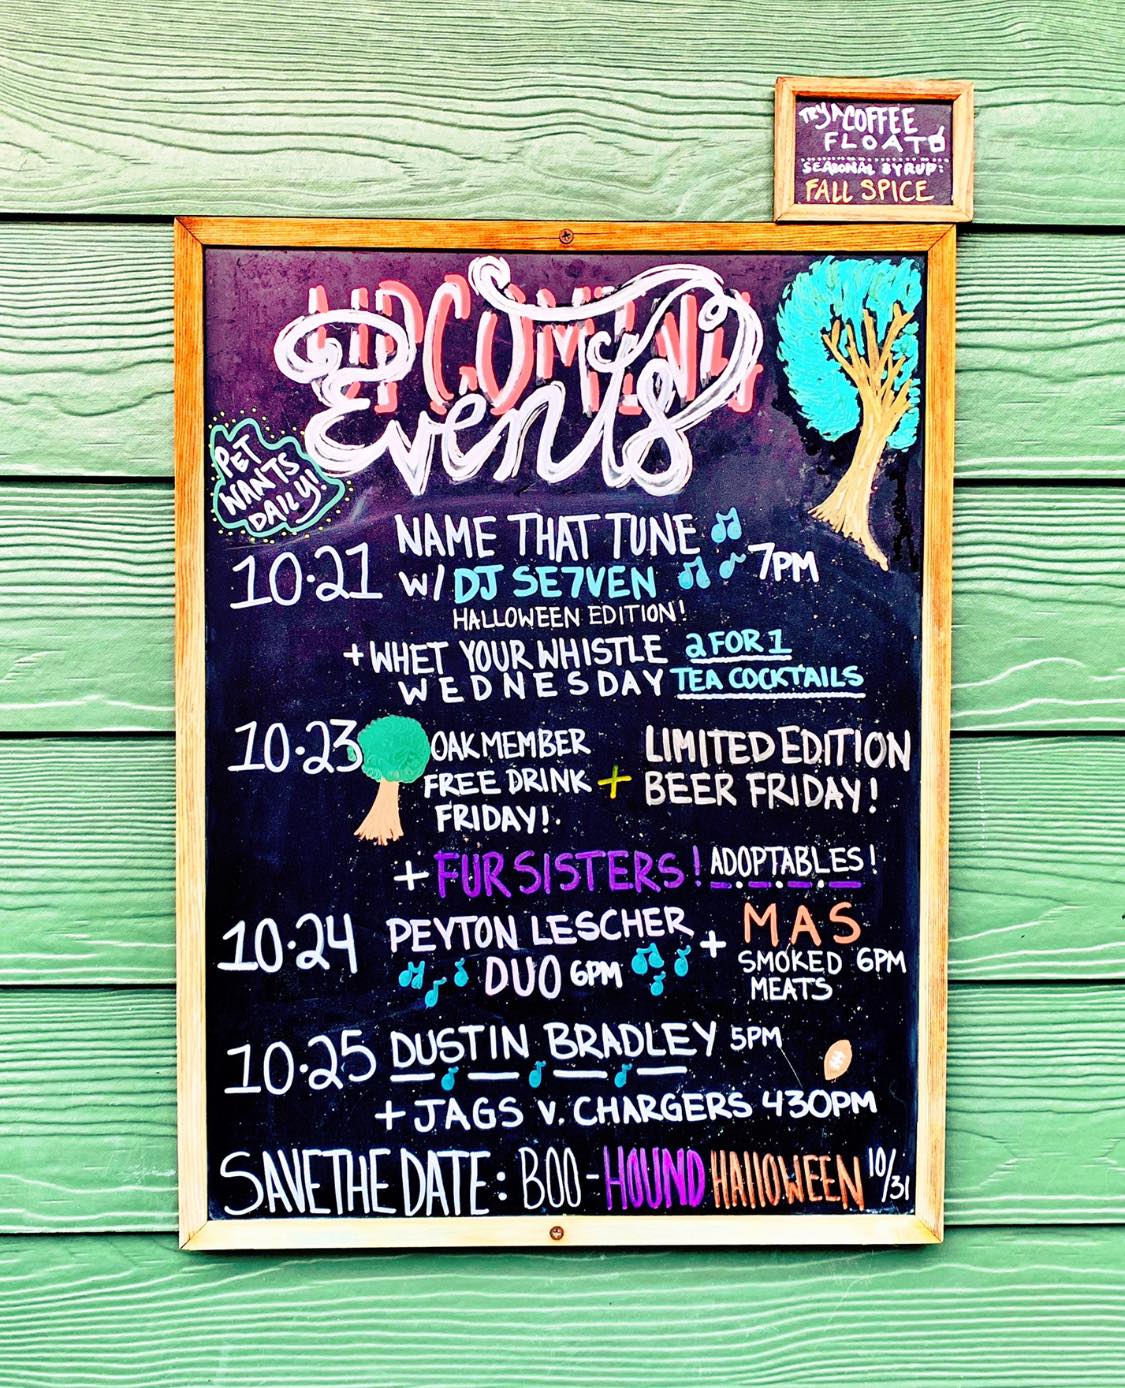 TRY A COFFEE
FLOAT
SEASONAL SYRUP:
FALL SPICE
UPCOMING
Events
PET
WANTS
DAILY!
10·21 NAME THAT TUNE 7PM
W/ DJ SE7VEN
HALLOWEEN EDITION!
+ WHET YOUR WHISTLE 2 FOR 1
WEDNESDAY TEA COCKTAILS
10·23 OAK MEMBER LIMITED EDITION
FREE DRINK + BEER FRIDAY!
FRIDAY!
+ FUR SISTERS! ADOPTABLES!
10·24 PEYTON LESCHER + MAS
DUO 6PM SMOKED 6PM
MEATS
10·25 DUSTIN BRADLEY 5PM
+ JAGS V. CHARGERS 430PM
SAVE THE DATE: BOO-HOUND HALLOWEEN 10/31